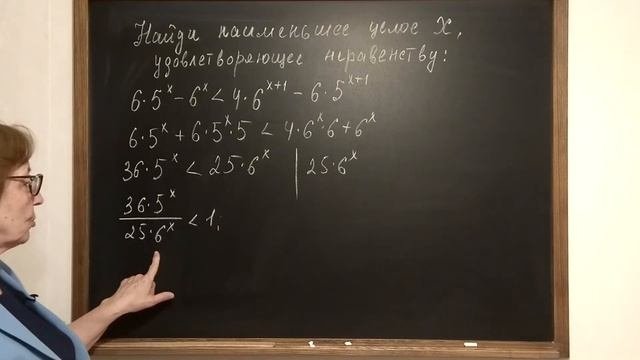 Найди наименьшее целое x,
удовлетворяющее неравенству:
6·5^x − 6^x < 4·6^{x+1} − 6·5^{x+1}
6·5^x + 6·5^x·5 < 4·6^x·6 + 6^x
36·5^x < 25·6^x | 25·6^x
\frac{36·5^x}{25·6^x} < 1;